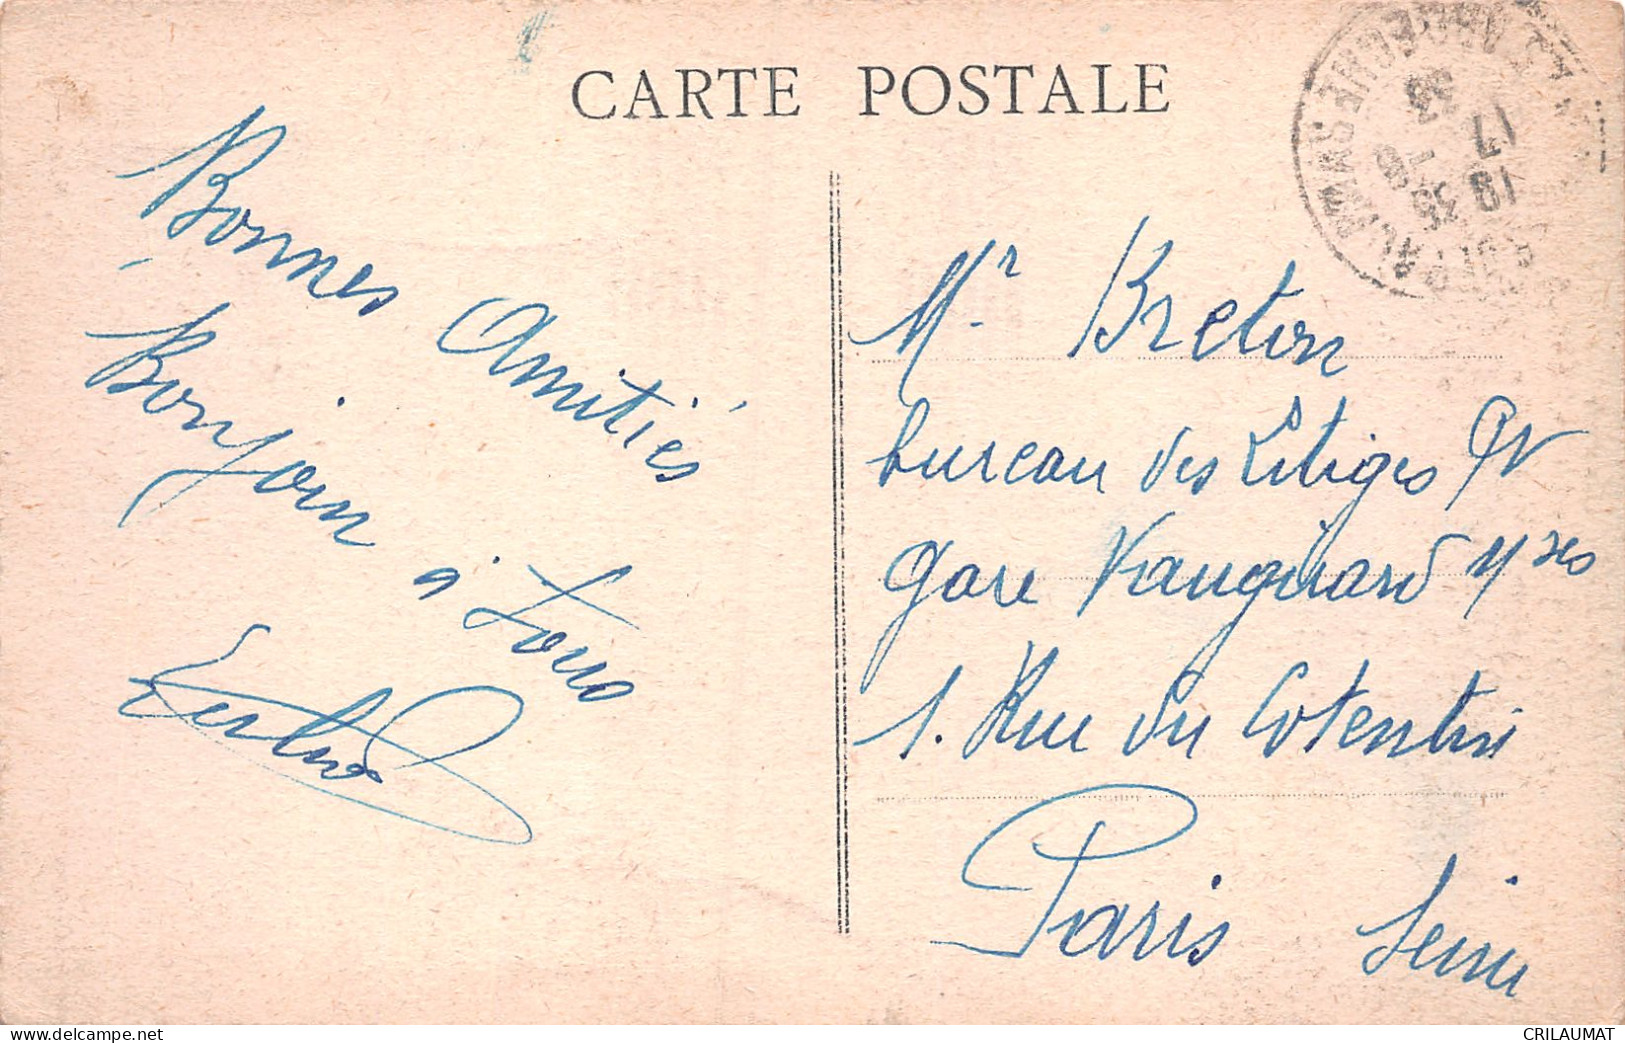 CARTE POSTALE
Bonnes Amitiés
Bonjour à Tous
Mr. Breton
bureau des Litiges GV
gare Vaugirard Mses
1. Rue du Cotentin
Paris Seine
www.delcampe.net
CRILAUMAT